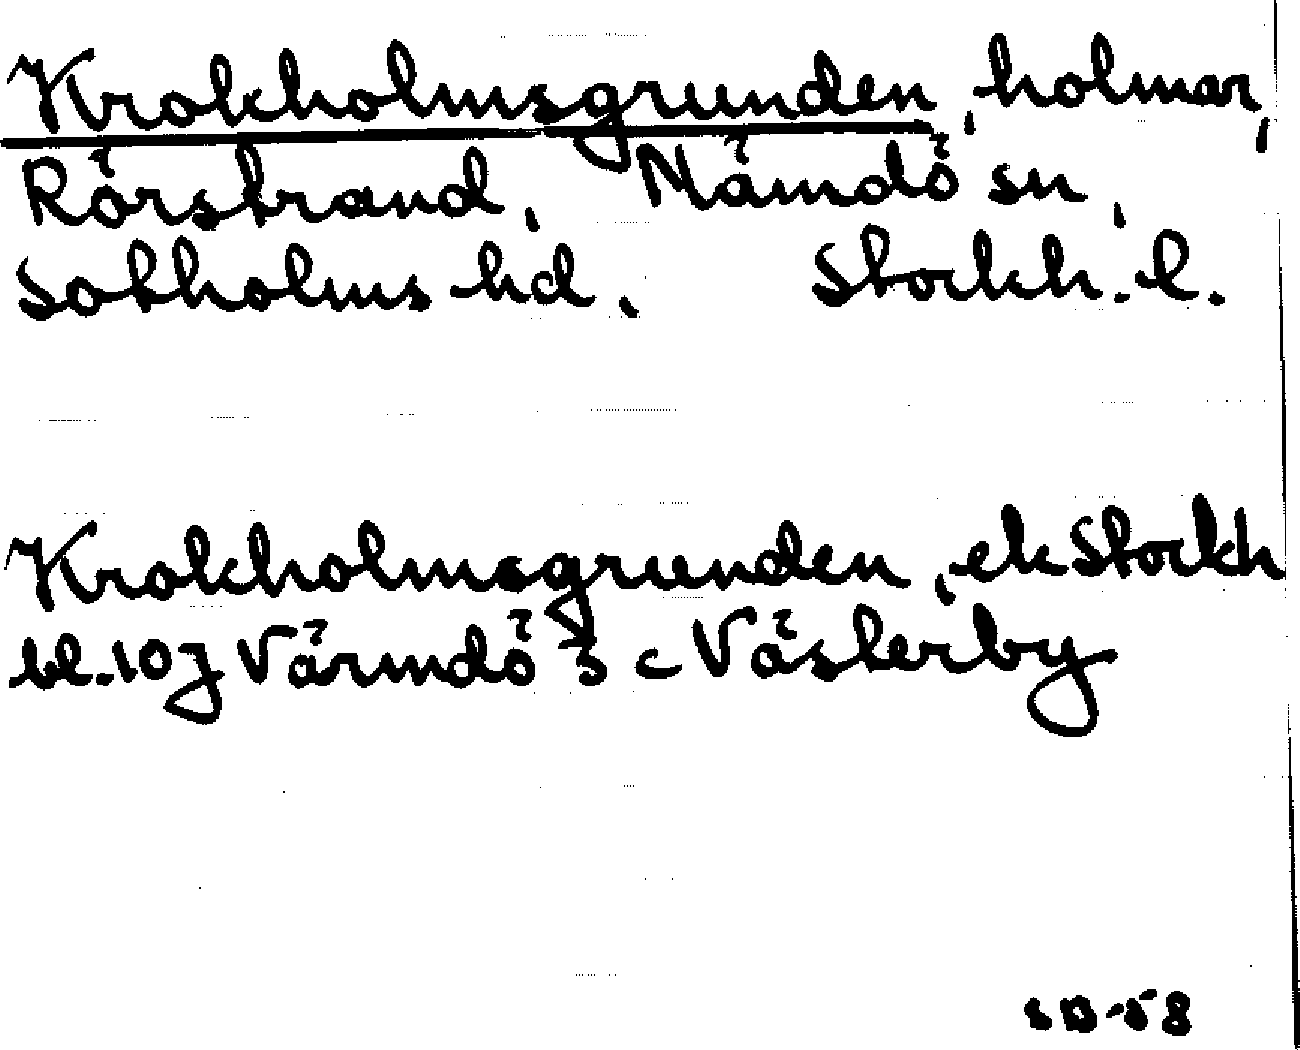 Krokholmsgrunden, holmar,
Rörstrand, Nämdö sn,
Sotholms hd, Stockh. l.
Krokholmsgrunden, ek Stockh
bl. 10 J Värmdö 3 c Västerby
SD-58